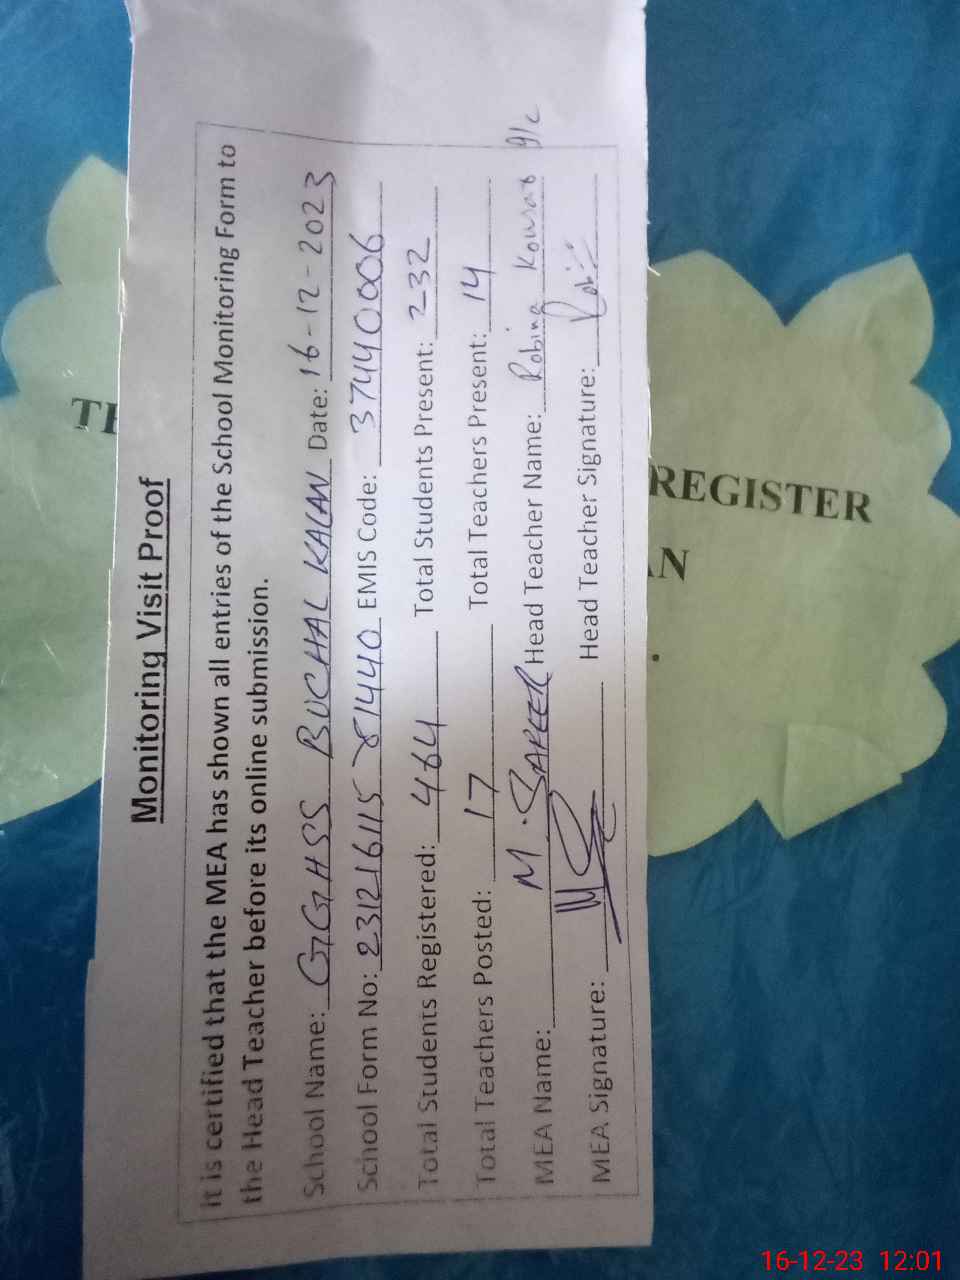 Monitoring Visit Proof
It is certified that the MEA has shown all entries of the School Monitoring Form to
the Head Teacher before its online submission.
School Name: GGHSS BUCHAL KALAN Date: 16-12-2023
School Form No: 231216115 81440 EMIS Code: 37440006
Total Students Registered: 464 Total Students Present: 232
Total Teachers Posted: 17 Total Teachers Present: 14
MEA Name: M. SAFEER Head Teacher Name: Robina Kousar I/C
MEA Signature: Head Teacher Signature:
REGISTER
16-12-23 12:01